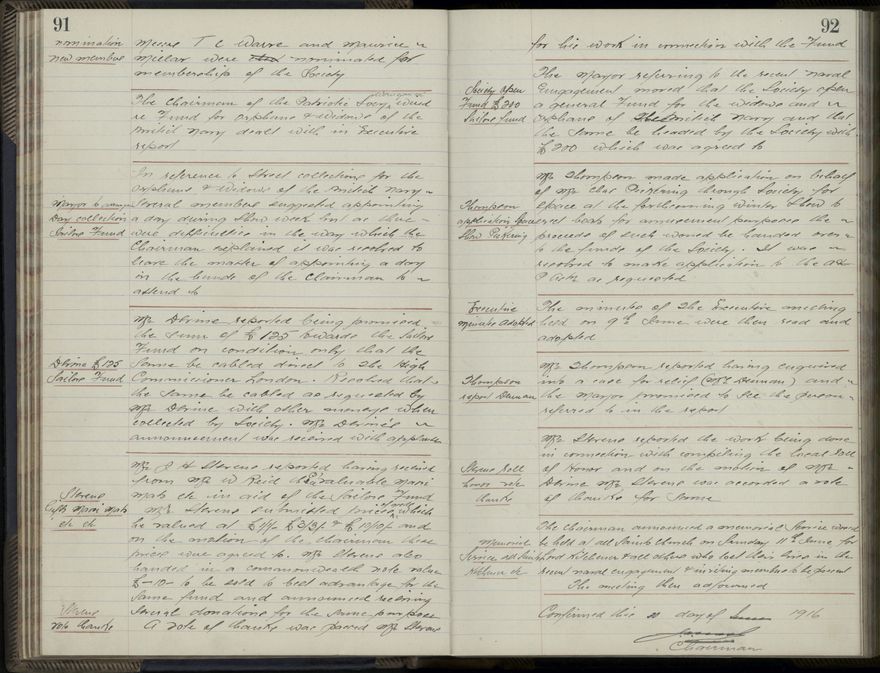 91
nomination
new members
Messrs T C Warre and Maurice
Millar were nominated for
membership of the Society
The Chairman of the Patriotic Socy
re Fund for orphans & widows of the
British Navy dealt with in Executive
report
In reference to Street collections for the
orphans & widows of the British Navy
Mayor to arrange
Day collection
Sailors Fund
Several members suggested appointing
a day during Show week but as there
were difficulties in the way which the
Chairman explained it was resolved to
leave the matter of appointing a day
in the hands of the Chairman to
attend to
Devine £125
Sailors Fund
Mr Devine reported being promised
the sum of £125 towards the Sailors
Fund on condition only that the
same be cabled direct to the High
Commissioner London. Resolved that
the same be cabled as requested by
Mr Devine with other moneys when
collected by Society. Mr Devine's
announcement was received with applause
Stevens
Gifts Maori Mats
etc etc
Mr J H Stevens reported having received
from Mr W Reid valuable Maori
mats etc in aid of the Sailors Fund
Mr Stevens submitted which
be valued at and
on the motion of the Chairman these
prices were agreed to. Mr Stevens also
handed in a commonwealth note value
£-10- to be sold to best advantage for the
same fund and announced receiving
several donations for the same purpose
Stevens
vote thanks
A vote of thanks was passed Mr Stevens
92
for his work in connection with the Fund
Society open
Fund £200
Sailors Fund
The Mayor referring to the recent naval
Engagement moved that the Society open
a general Fund for the widows and
orphans of British Navy and that
the same be headed by the Society with
£200 which was agreed to
Thompson
application space
Show Pickering
Mr Thompson made application on behalf
of Mr Chas Pickering through Society for
space at the forthcoming Winter Show to
erect boats for amusement purposes the
proceeds of such would be handed over
to the funds of the Society. It was
resolved to make application to the A&
P Assn as requested
Executive
minutes adopted
The minutes of the Executive meeting
held on 9th June were then read and
adopted
Thompson
report Dennan
Mr Thompson reported having enquired
into a case for relief (Mrs Dennan) and
the Mayor promised to see the person
referred to in the report
Stevens Roll
honor vote
thanks
Mr Stevens reported the work being done
in connection with compiling the local Roll
of Honor and on the motion of Mr
Devine Mr Stevens was accorded a vote
of thanks for same
Memorial
Service all Saints
Kitchener etc
The Chairman announced a memorial service would
be held at all Saints Church on Sunday 11th June for
Lord Kitchener & all others who lost their lives in the
recent naval engagement & inviting members to be present
The meeting then adjourned
Confirmed this day of 1916
Chairman